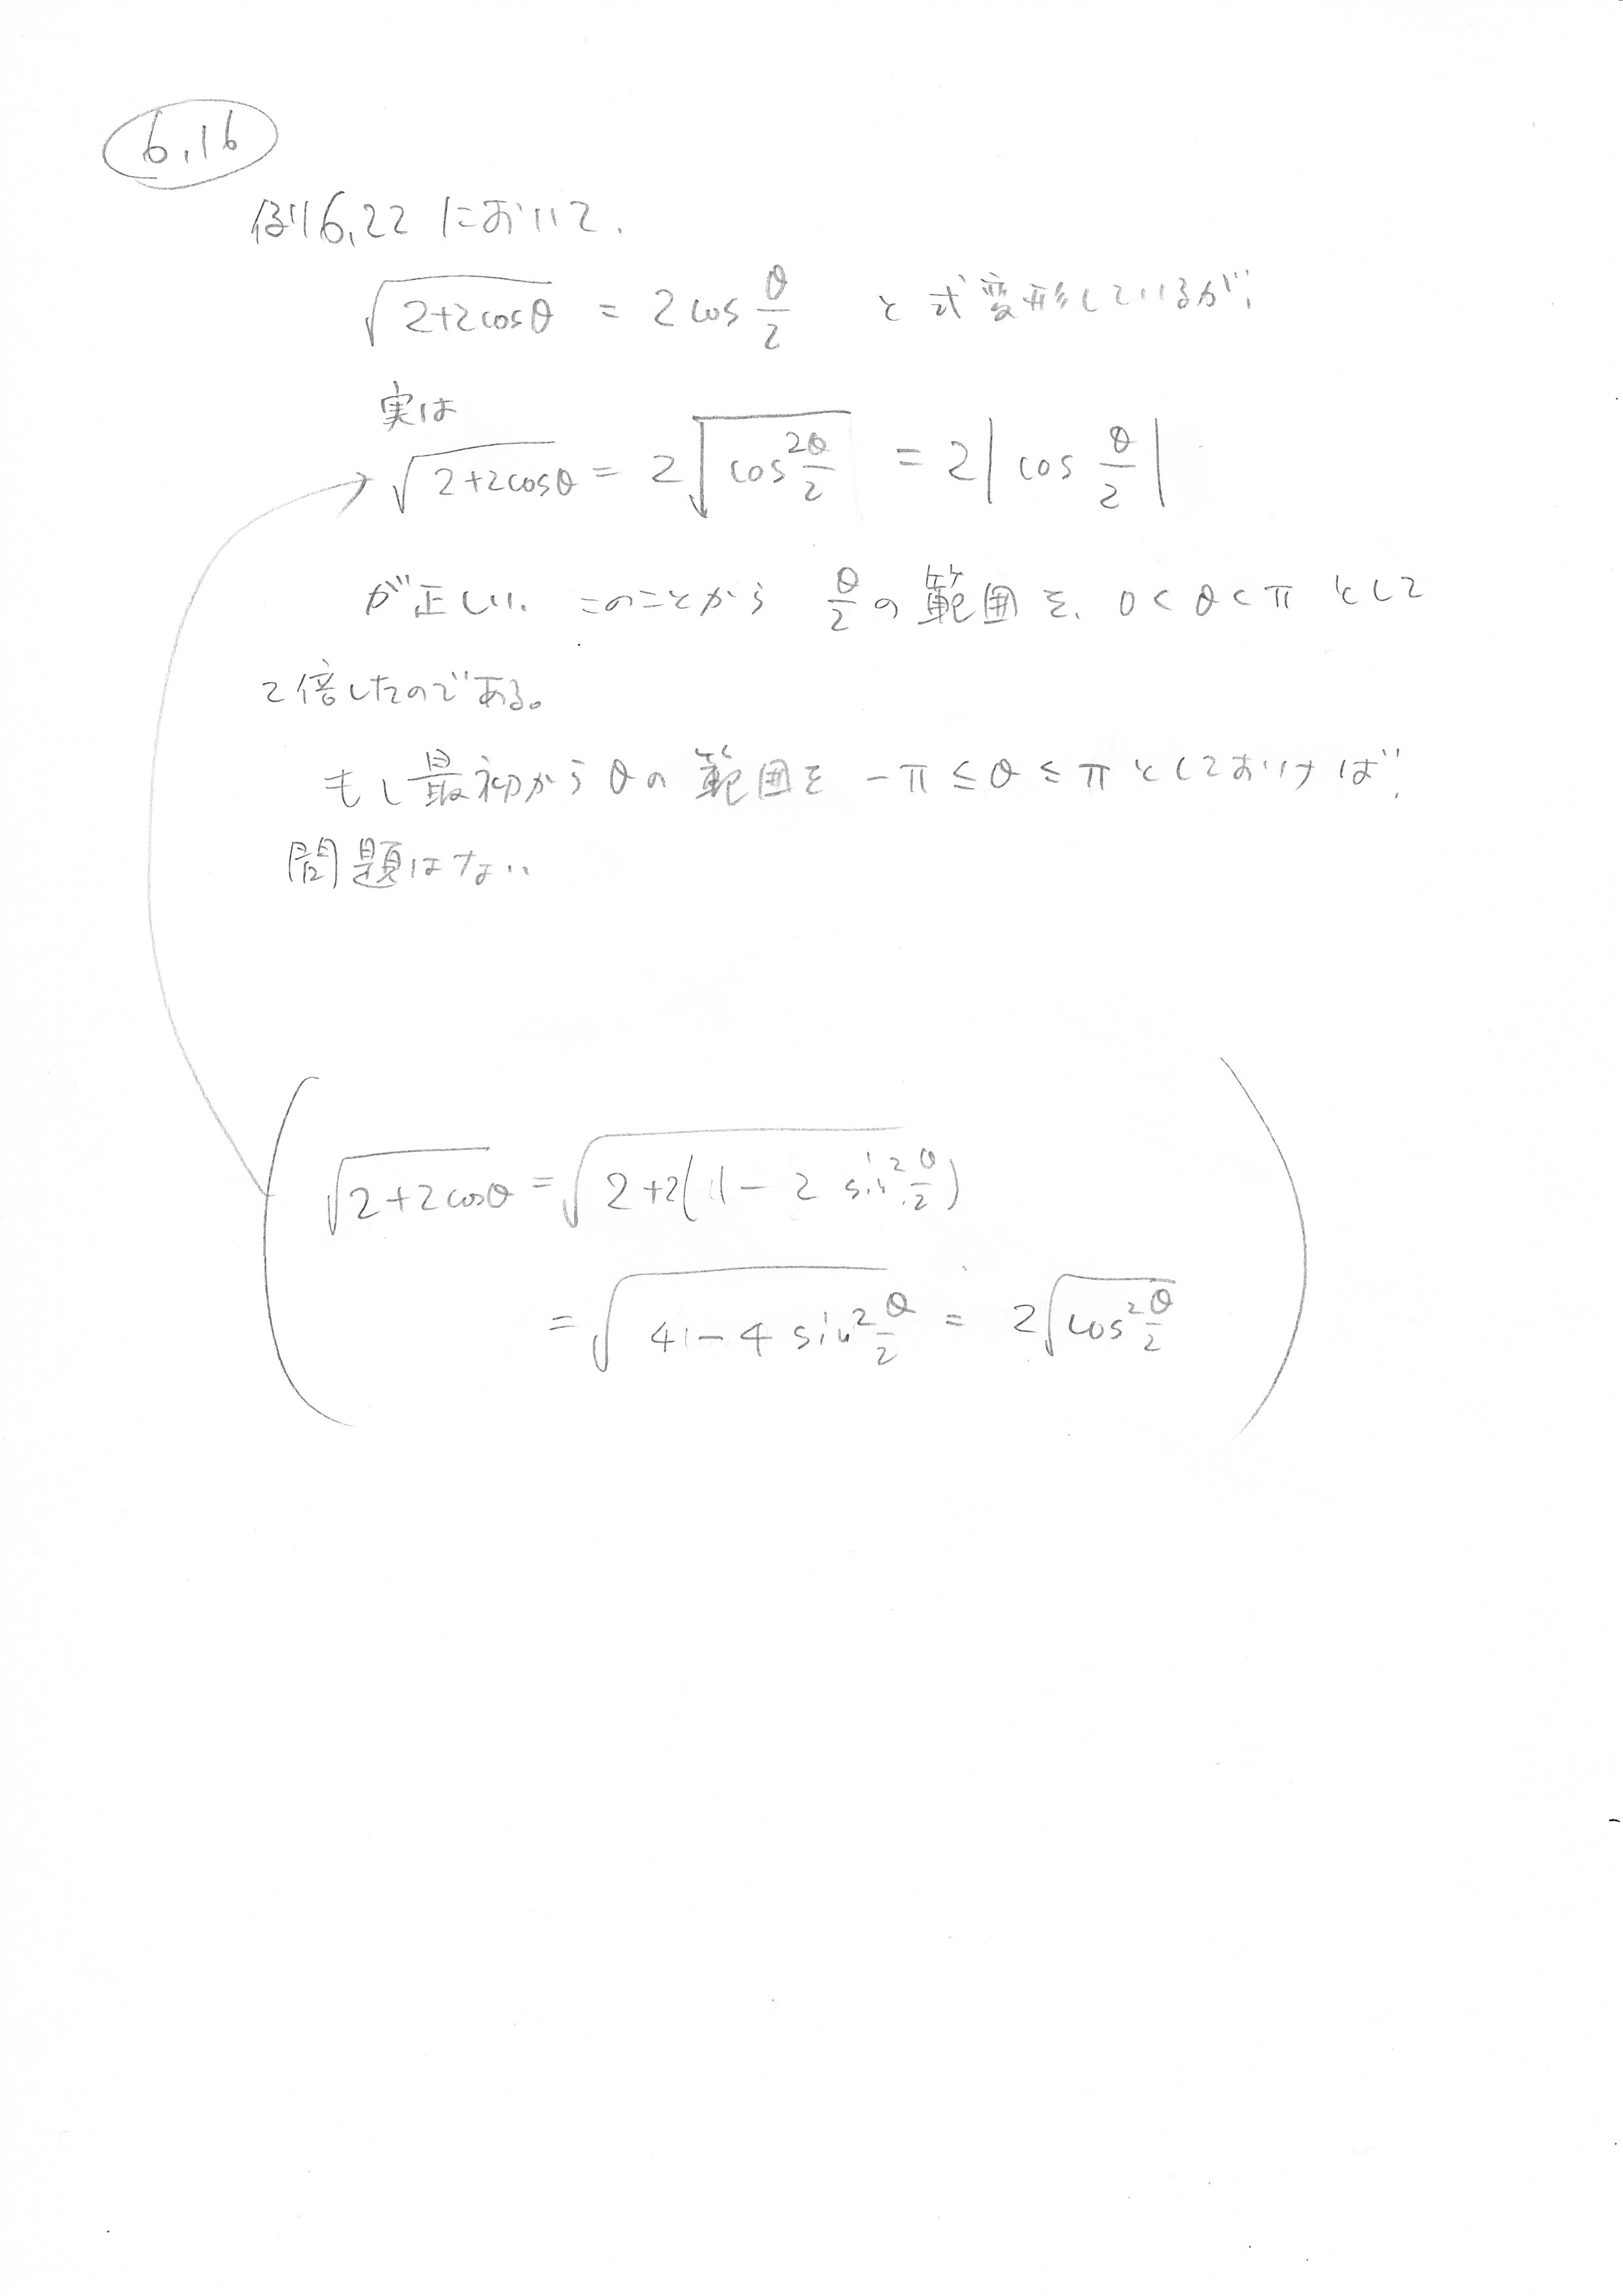 6.16
例6.22 において、
√(2+2cosθ) = 2cos θ/2 と式変形しているが、
実は
√(2+2cosθ) = 2√(cos²θ/2) = 2|cos θ/2|
が正しい、このことから θ/2の範囲を、0<θ<π として
2倍したのである。
もし最初からθの範囲を -π≤θ≤πとしておけば、
問題はない
√(2+2cosθ) = √(2+2(1-2sin²θ/2))
= √(4-4sin²θ/2) = 2√(cos²θ/2)